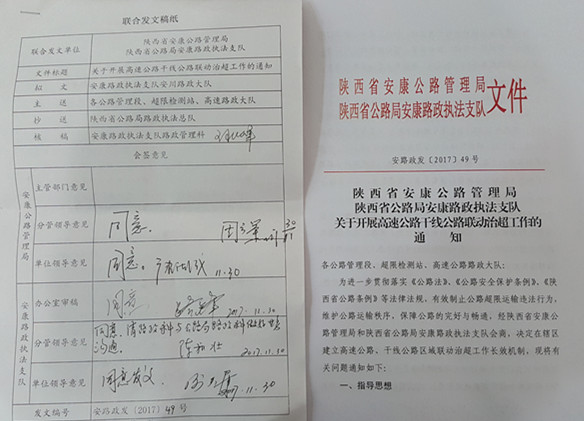 联合发文稿纸
联合发文单位
陕西省安康公路管理局
陕西省公路局安康路政执法支队
文件标题 关于开展高速公路干线公路联动治超工作的通知
拟文 安康路政执法支队安川路政大队
主送 各公路管理段、超限检测站、高速路政大队
抄送 陕西省公路局路政执法总队
核稿 安康路政执法支队路政管理科
会签意见
安康公路管理局
主管部门意见
分管领导意见 同意.
单位领导意见 同意. 11.30
安康路政执法支队
办公室审稿 同意 2017.11.30
分管领导意见 同意,请路政科与公路局路政科做好对接
沟通. 2017.11.30
单位领导意见 同意发文. 11.30
发文编号 安路政发〔2017〕49号
陕西省安康公路管理局
陕西省公路局安康路政执法支队
文件
安路政发〔2017〕49号
陕西省安康公路管理局
陕西省公路局安康路政执法支队
关于开展高速公路干线公路联动治超工作的
通知
各公路管理段、超限检测站、高速公路路政大队:
为进一步贯彻落实《公路法》、《公路安全保护条例》、《陕
西省公路条例》等法律法规,有效制止公路超限运输违法行为,
维护公路运输秩序,保障公路的完好与畅通,经陕西省安康公
路管理局和陕西省公路局安康路政执法支队会商,决定在辖区
建立高速公路、干线公路区域联动治超工作长效机制,现将有
关问题通知如下:
一、指导思想